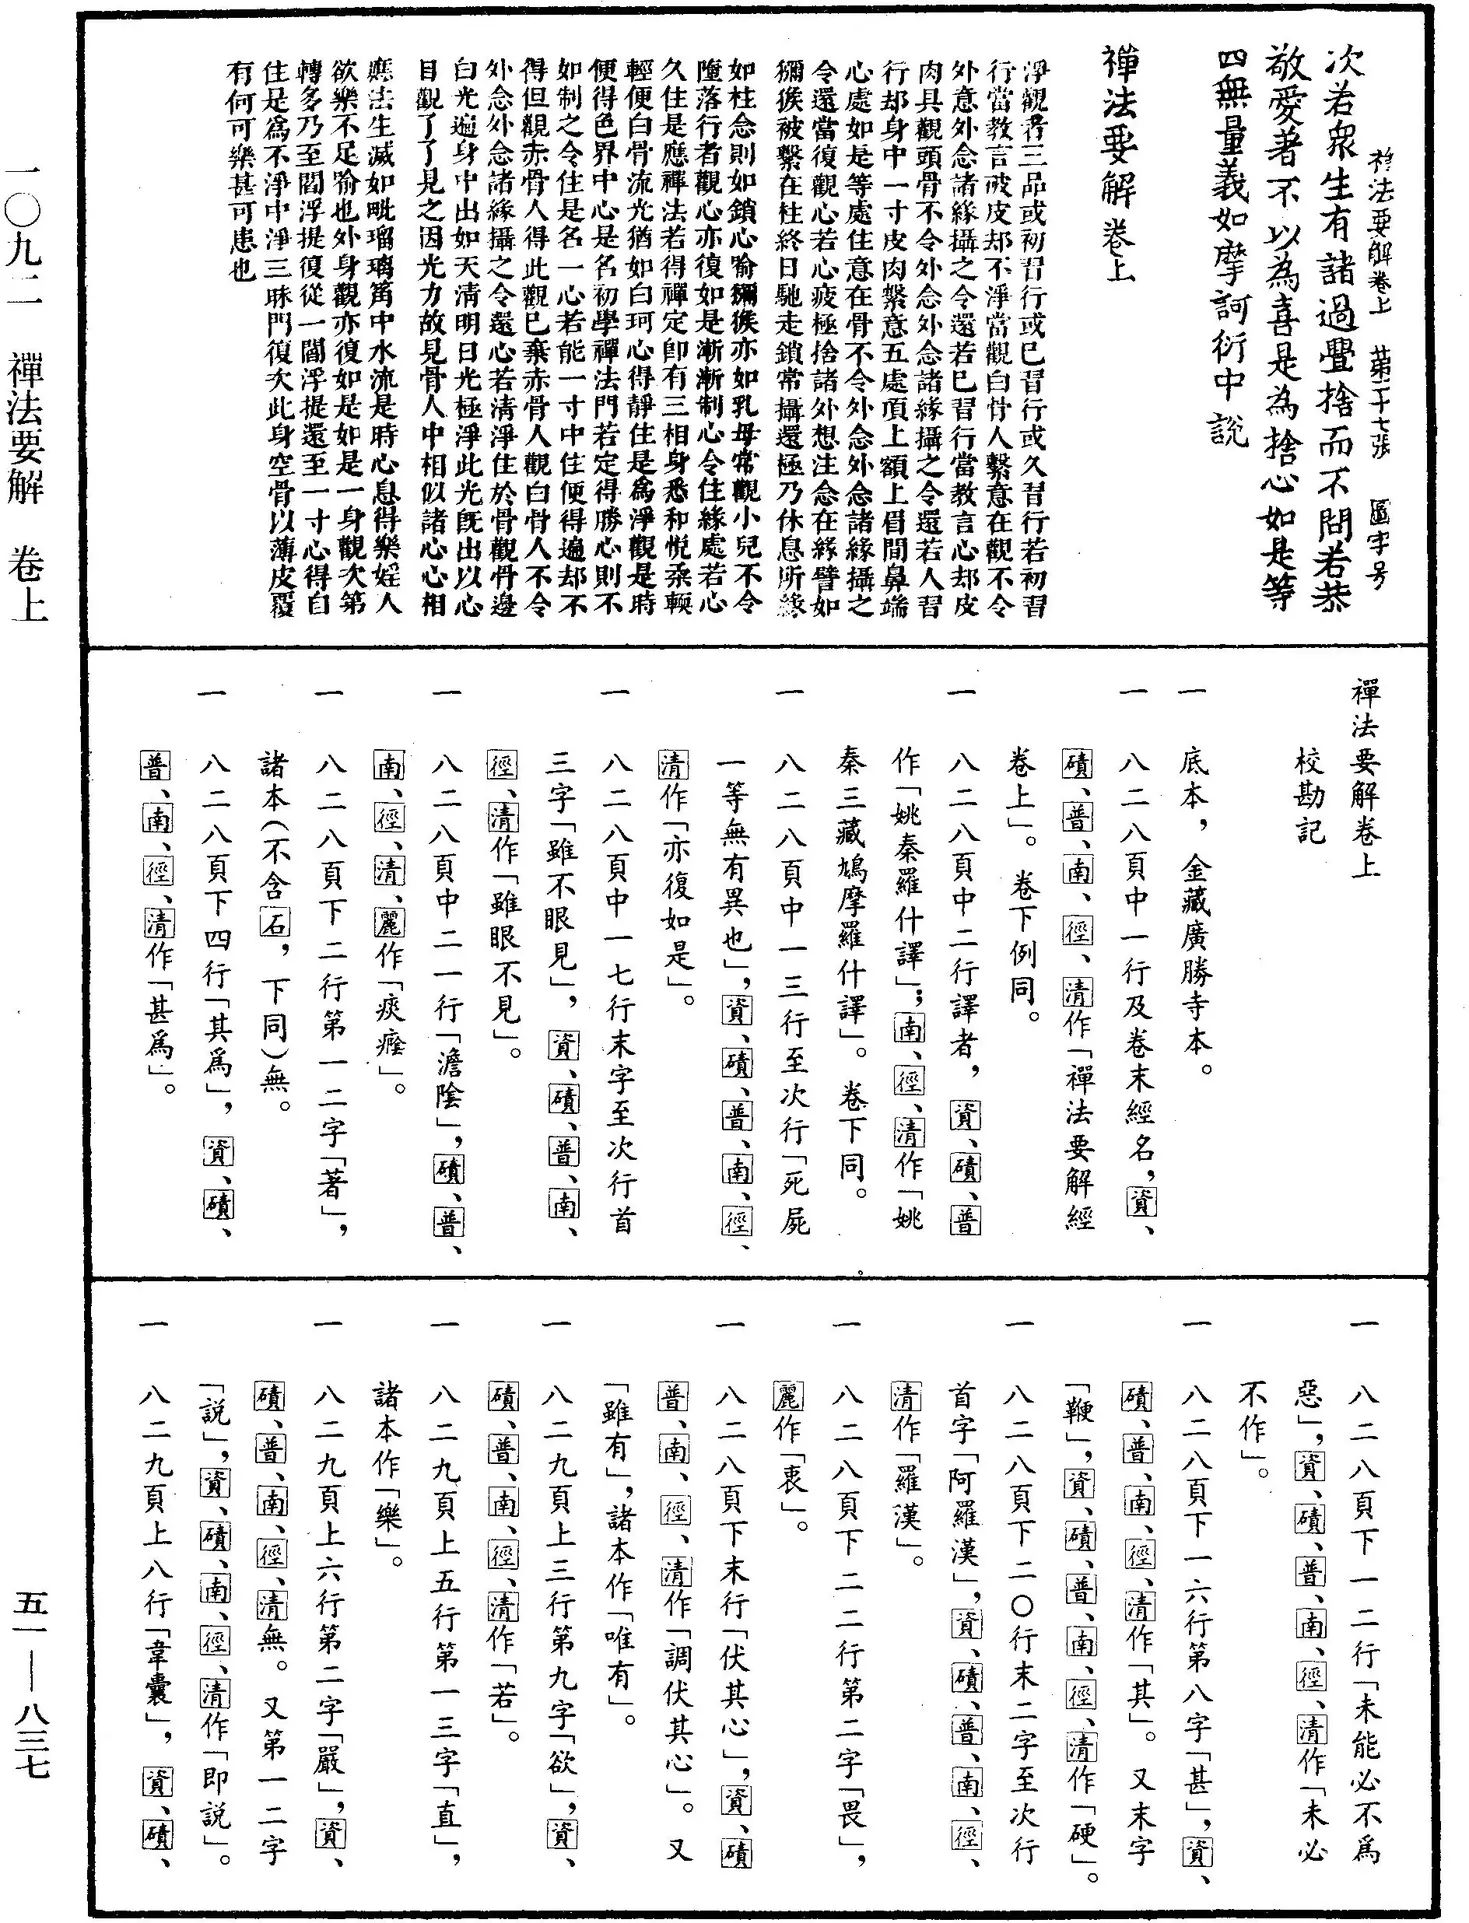 禪法要解卷上　第二十七張　圖字号
次若衆生有諸過舋捨而不問若恭
敬愛著不以為喜是為捨心如是等
四無量義如摩訶衍中說
禪法要解卷上
淨觀者三品或初習行或已習行或久習行若初習
行當教言破皮却不淨當觀白骨人繫意在觀不令
外意外念諸緣攝之令還若已習行當教言心却皮
肉具觀頭骨不令外念外念諸緣攝之令還若人習
行却身中一寸皮肉繫意五處頂上額上眉間鼻端
心處如是等處住意在骨不令外念外念諸緣攝之
令還當復觀心若心疲極捨諸外想注念在緣譬如
獼猴被繫在柱終日馳走鎖常攝還極乃休息所緣
如柱念則如鎖心喻獼猴亦如乳母常觀小兒不令
墮落行者觀心亦復如是漸漸制心令住緣處若心
久住是應禪法若得禪定即有三相身悉和悅柔輭
輕便白骨流光猶如白珂心得靜住是為淨觀是時
便得色界中心是名初學禪法門若定得勝心則不
如制之令住是名一心若能一寸中住便得遍却不
得但觀赤骨人得此觀已棄赤骨人觀白骨人不令
外念外念諸緣攝之令還心若清淨住於骨觀骨邊
白光遍身中出如天清明日光極淨此光既出以心
目觀了了見之因光力故見骨人中相似諸心心相
應法生滅如毗瑠璃筩中水流是時心息得樂婬人
欲樂不足喻也外身觀亦復如是如是一身觀次第
轉多乃至閻浮提復從一閻浮提還至一寸心得自
住是為不淨中淨三昧門復次此身空骨以薄皮覆
有何可樂甚可患也
禪法要解卷上
校勘記
一　底本，金藏廣勝寺本。
一　八二八頁中一行及卷末經名，資、
磧、普、南、徑、清作「禪法要解經
卷上」。卷下例同。
一　八二八頁中二行譯者，資、磧、普
作「姚秦羅什譯」；南、徑、清作「姚
秦三藏鳩摩羅什譯」。卷下同。
一　八二八頁中一三行至次行「死屍
一等無有異也」，資、磧、普、南、徑、
清作「亦復如是」。
一　八二八頁中一七行末字至次行首
三字「雖不眼見」，資、磧、普、南、
徑、清作「雖眼不見」。
一　八二八頁中二一行「澹陰」，磧、普、
南、徑、清、麗作「痰癊」。
一　八二八頁下二行第一二字「著」，
諸本（不含石，下同）無。
一　八二八頁下四行「其爲」，資、磧、
普、南、徑、清作「甚爲」。
一　八二八頁下一二行「未能必不爲
惡」，資、磧、普、南、徑、清作「未必
不作」。
一　八二八頁下一六行第八字「甚」，資、
磧、普、南、徑、清作「其」。又末字
「鞕」，資、磧、普、南、徑、清作「硬」。
一　八二八頁下二〇行末二字至次行
首字「阿羅漢」，資、磧、普、南、徑、
清作「羅漢」。
一　八二八頁下二二行第二字「畏」，
麗作「衷」。
一　八二八頁下末行「伏其心」，資、磧
普、南、徑、清作「調伏其心」。又
「雖有」，諸本作「唯有」。
一　八二九頁上三行第九字「欲」，資、
磧、普、南、徑、清作「若」。
一　八二九頁上五行第一三字「直」，
諸本作「樂」。
一　八二九頁上六行第二字「嚴」，資、
磧、普、南、徑、清無。又第一二字
「説」，資、磧、南、徑、清作「即説」。
一　八二九頁上八行「韋囊」，資、磧、
一〇九二　禪法要解　卷上
五一——八三七